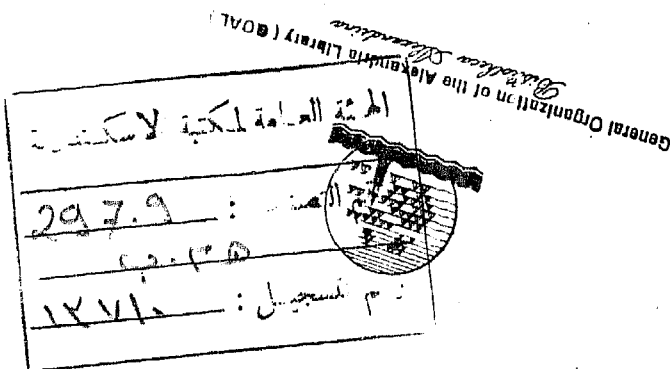 General Organization of the Alexandria Library (GOAL)
Bibliotheca Alexandrina
الهيئة العامة لمكتبة الاسكندرية
297.9 :
رقم التسجيل : ١٢٧١٠